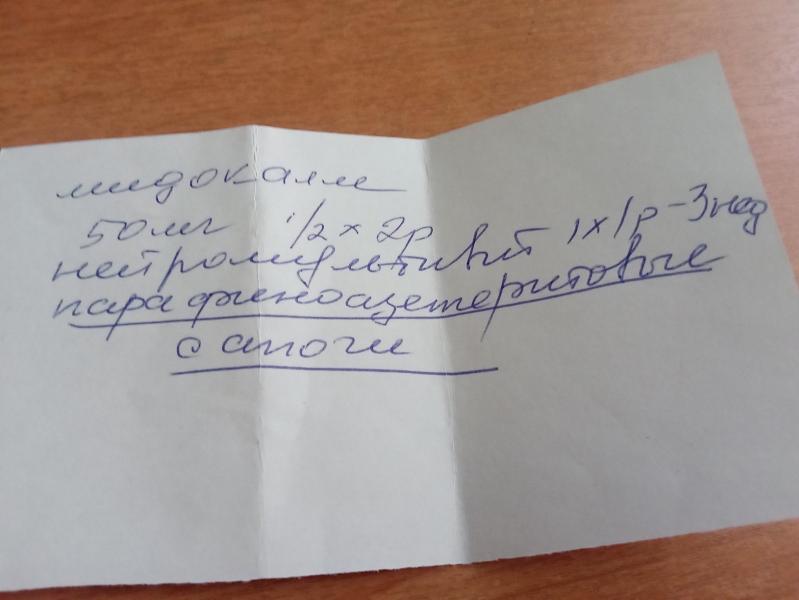 мидокалм
50мг 1/2 × 2р
нейромультивит 1×1р-3нед
парафиноацетеритовые
сапоги